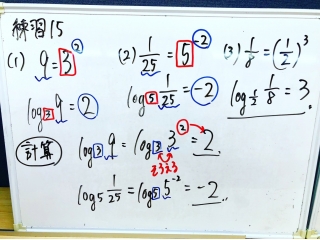 練習15
(1) 9 = 3² (2) 1/25 = 5⁻² (3) 1/8 = (1/2)³
log₃ 9 = 2 log₅ 1/25 = -2 log_{1/2} 1/8 = 3
計算 log₃ 9 = log₃ 3² = 2
そろえる
log₅ 1/25 = log₅ 5⁻² = -2